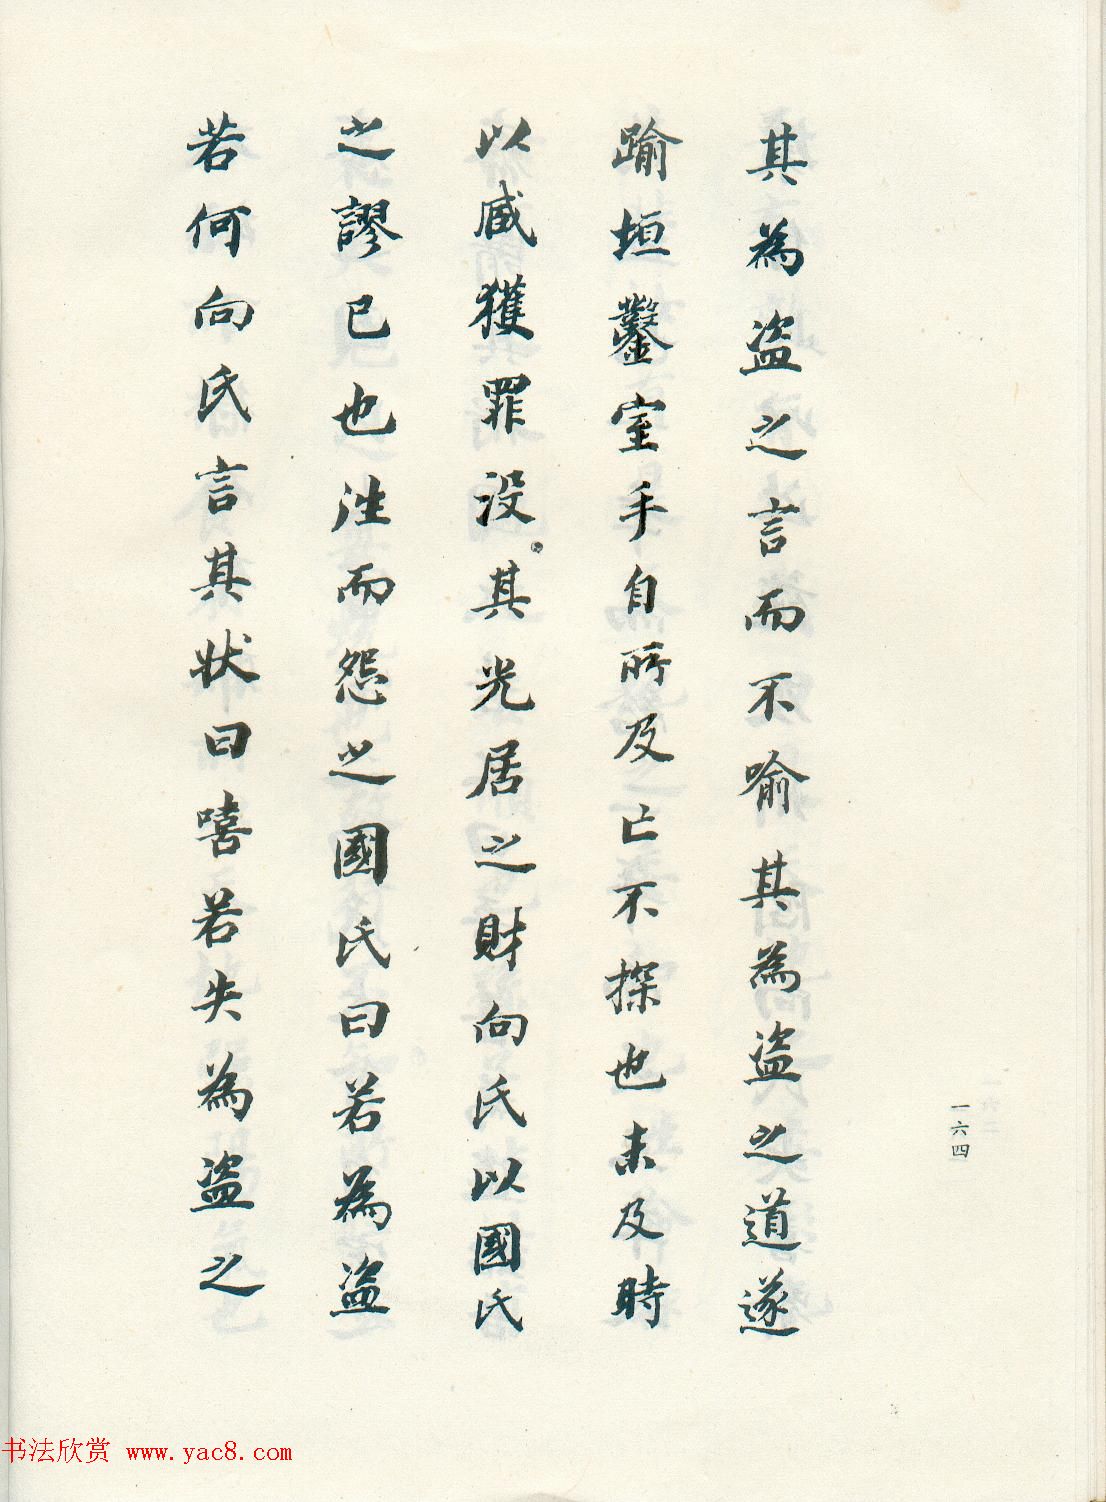 其為盜之言而不喻其為盜之道遂
踰垣鑿室手自所及亡不探也未及時
以臧獲罪没其先居之財向氏以國氏
之謬已也往而怨之國氏曰若為盜
若何向氏言其狀曰嘻若失為盜之
一六四
书法欣赏 www.yac8.com